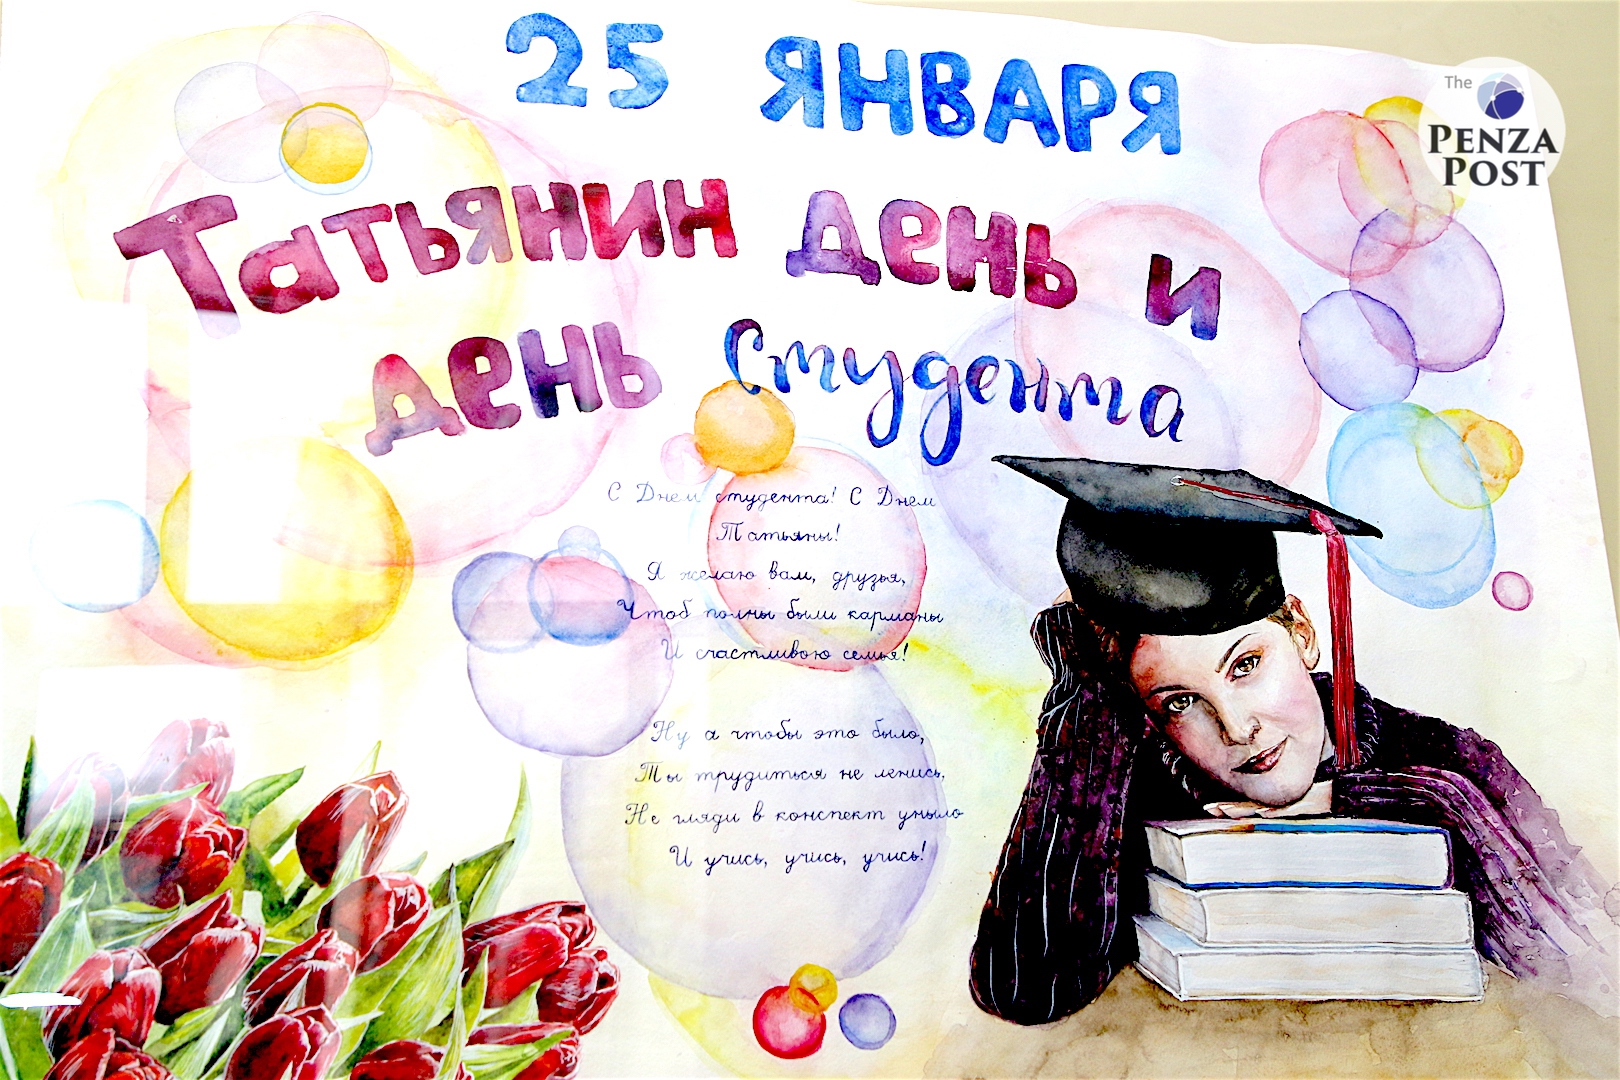 25 ЯНВАРЯ
Татьянин день и
день студента
The
PENZA
POST
С Днем студента! С Днем
Татьяны!
Я желаю вам, друзья,
Чтоб полны были карманы
И счастливою семья!
Ну а чтобы это было,
Ты трудиться не ленись,
Не гляди в конспект уныло
И учись, учись, учись!